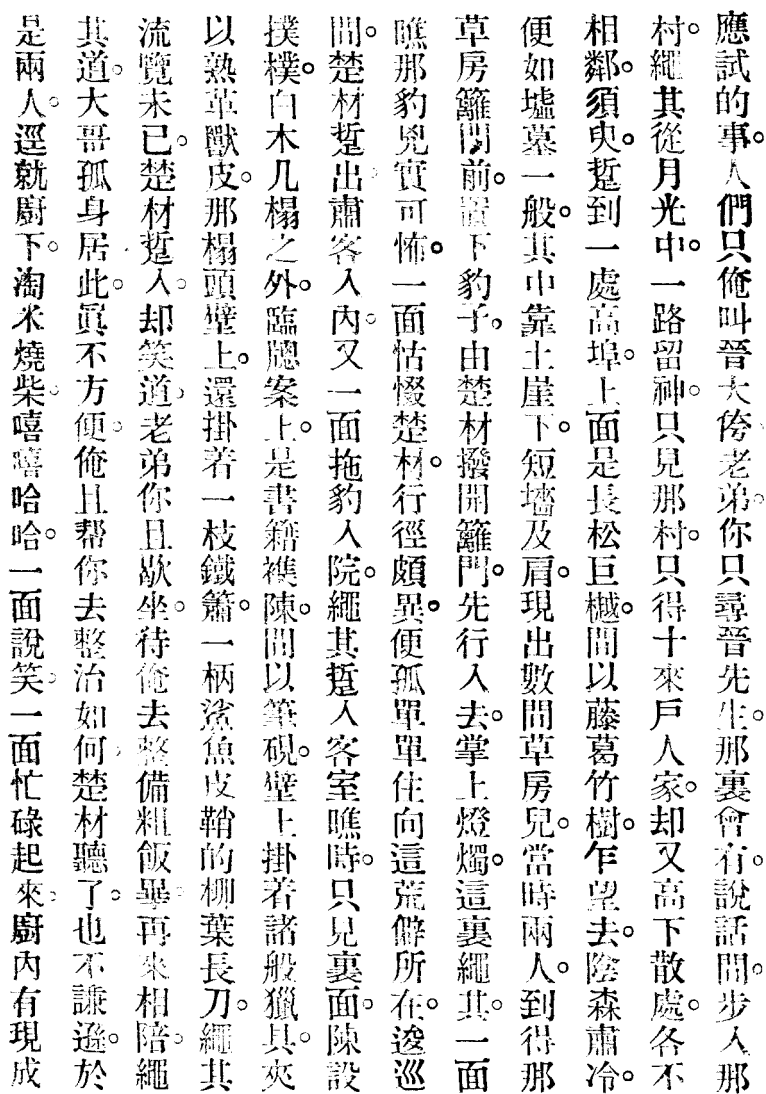 應試的事。人們只俺叫晉大侉老弟。你只尋晉先生。那裏會有說話間。步入那
村。繩其從月光中。一路留神。只見那村。只得十來戶人家。却又高下散處。各不
相鄰。須臾。踅到一處高埠。上面是長松巨樾。間以藤葛竹樹。乍望去。陰森肅冷。
便如墟墓一般。其中靠土崖下。短墻及肩。現出數間草房兒。當時兩人。到得那
草房籬門前。置下豹子。由楚材撥開籬門。先行入去。掌上燈燭。這裏繩其。一面
瞧那豹兒實可怖。一面怙惙楚材。行徑頗異。便孤單單住向這荒僻所在。逡巡
間。楚材踅出肅客入內。又一面拖豹入院。繩其踅入客室瞧時。只見裏面。陳設
撲樸。白木几榻之外。臨牕案上。是書籍襍陳。間以筆硯。壁上掛着諸般獵具。夾
以熟革獸皮。那榻頭壁上。還掛着一枝鐵簫。一柄鯊魚皮鞘的柳葉長刀。繩其
流覽未已。楚材踅入。却笑道。老弟你且歇坐。待俺去整備粗飯畢。再來相陪。繩
其道。大哥孤身居此。眞不方便。俺且帮你去整治如何。楚材聽了。也不謙遜。於
是兩人。逕就廚下。淘米燒柴。嘻嘻哈哈。一面說笑。一面忙碌起來。廚內有現成